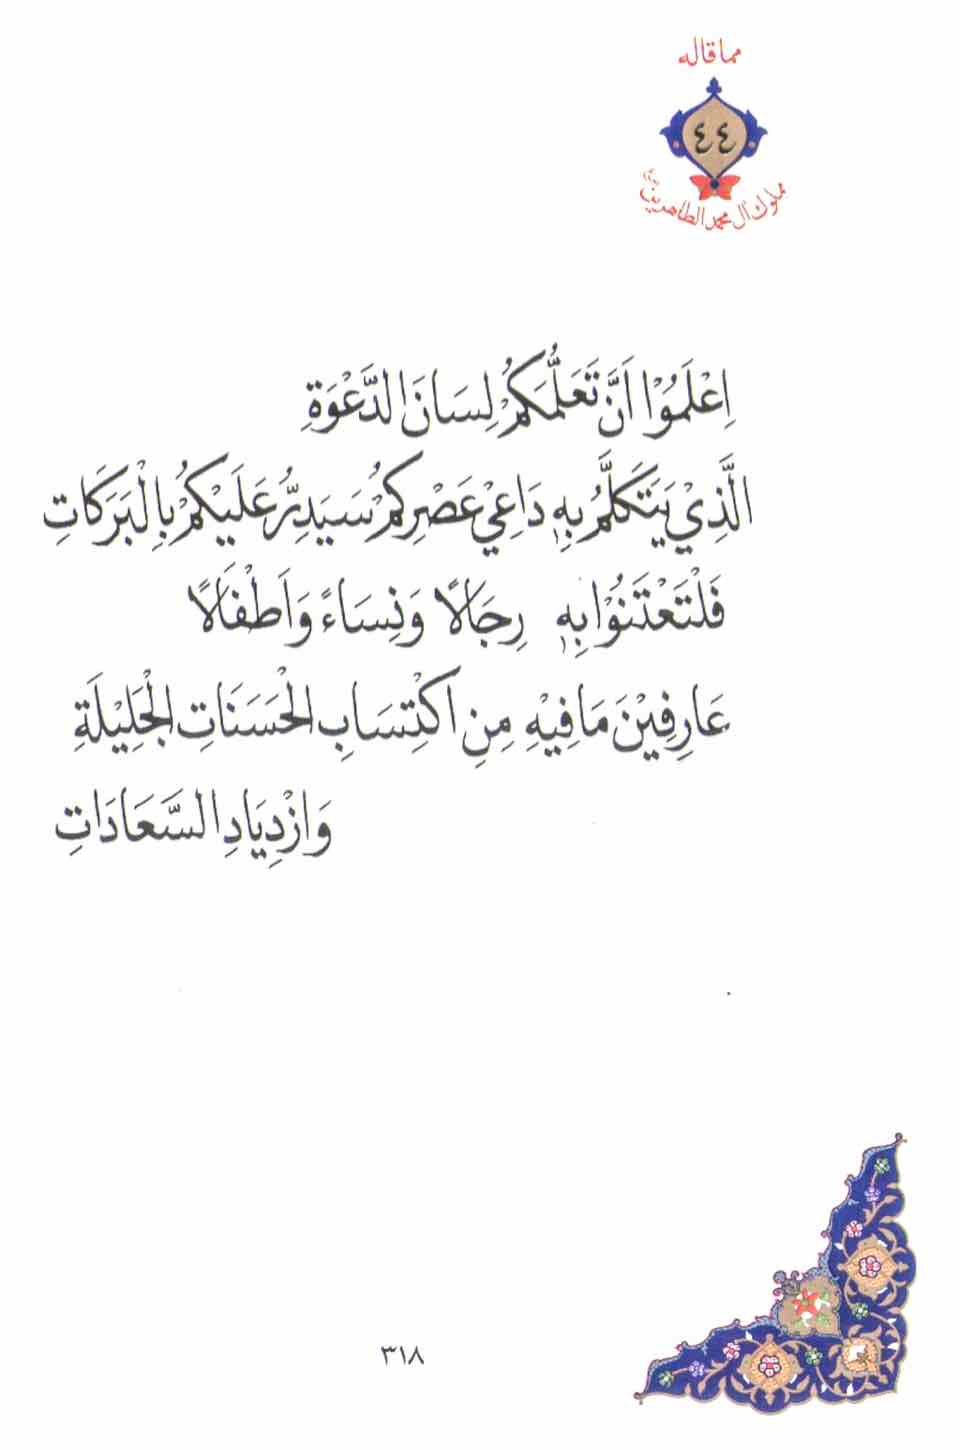 مما قاله
٤٤
مملوك آل محمد الطاهرين
اِعْلَمُوْا اَنَّ تَعَلُّمَكُمْ لِسَانَ الدَّعْوَةِ
الَّذِيْ يَتَكَلَّمُ بِهٖ دَاعِيْ عَصْرِكُمْ سَيَدِرُّ عَلَيْكُمْ بِالْبَرَكَاتِ
فَلْتَعْتَنُوْا بِهٖ رِجَالًا وَنِسَاءً وَاَطْفَالًا
عَارِفِيْنَ مَا فِيْهِ مِنِ اكْتِسَابِ الْحَسَنَاتِ الْجَلِيْلَةِ
وَازْدِيَادِ السَّعَادَاتِ
٣١٨